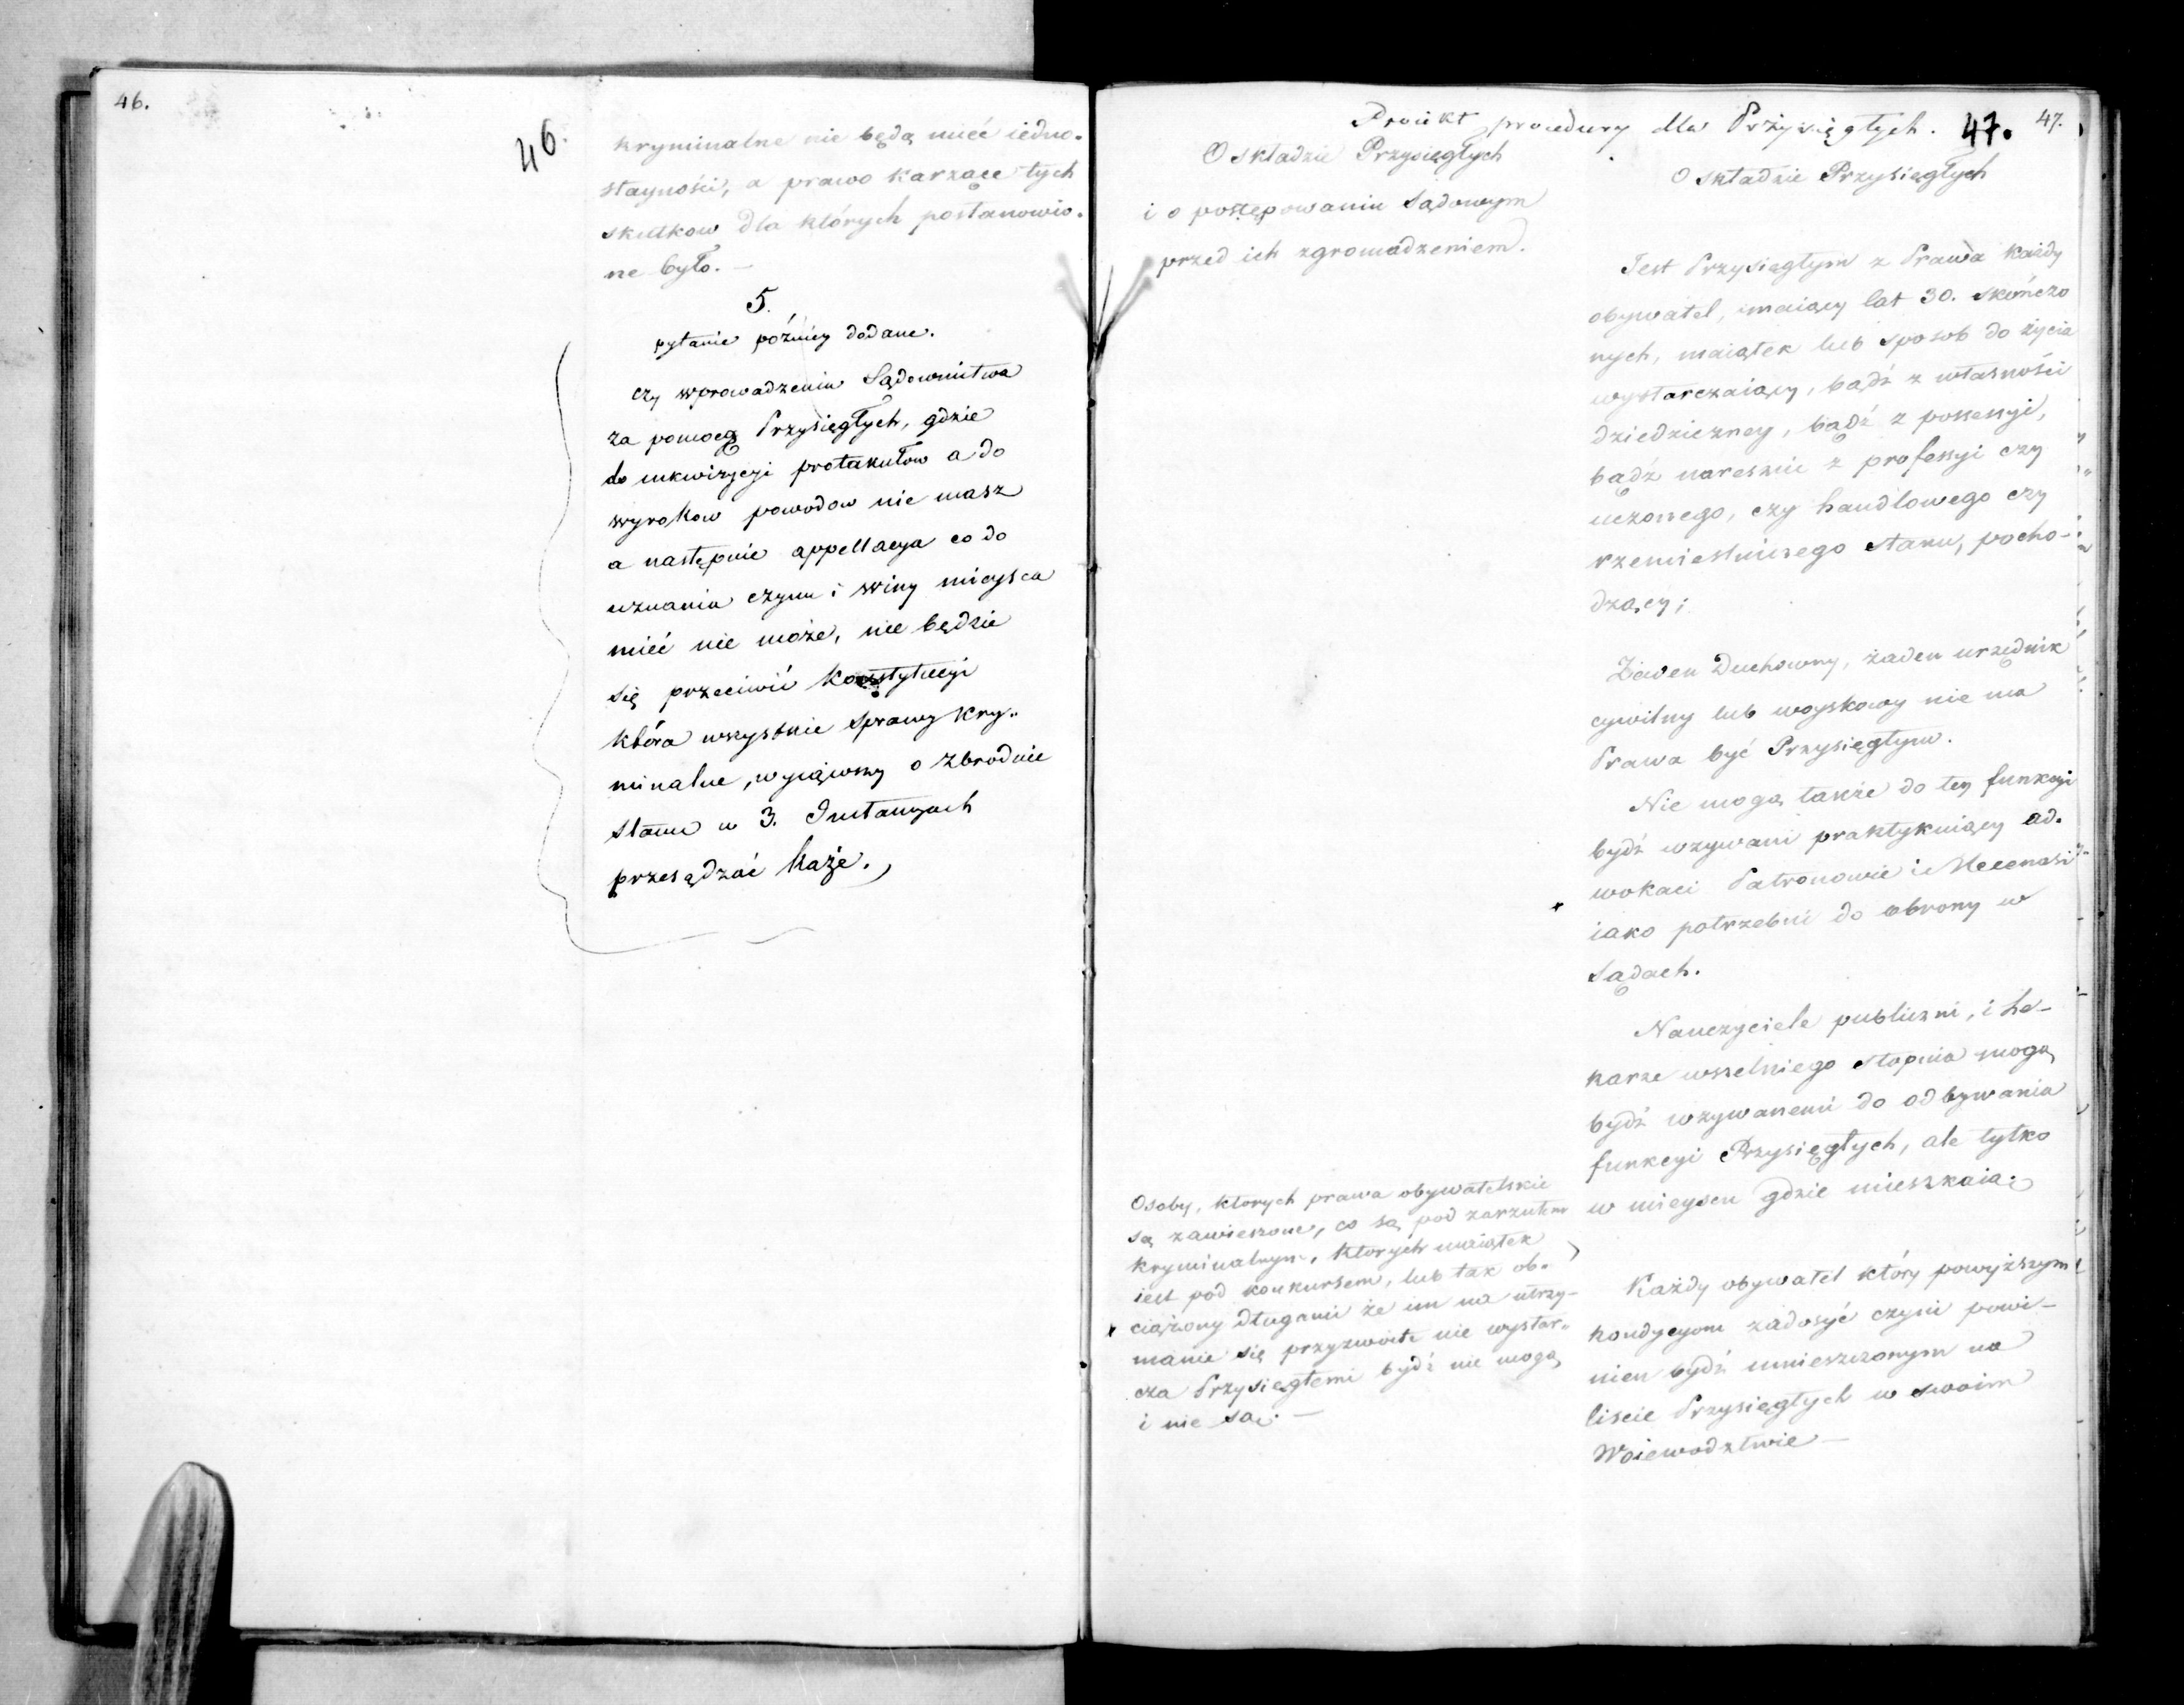 46.
46.
kryminalne nie będą mieć iedno-
stayności, a prawo karzące tych
skutkow dla których postanowio-
ne było. —
5.
pytanie później dodane.
czy wprowadzeniu Sądownictwa
za pomocą Przysięgłych, gdzie
do inkwizycyi protokułow a do
wyrokow powodow nie masz
a następnie appellacya co do
uznania czynu i winy mieysca
mieć nie może, nie będzie
się przeciwić konstytucyi
która wszystkie sprawy kry-
minalne, wyiąwszy o zbrodnie
stanu w 3. Instancyach
przesądzać każe.
Proiekt procedury dla Przysięgłych. 47. 47.
O składzie Przysięgłych
i o postępowaniu Sądowym
przed ich zgromadzeniem.
O składzie Przysięgłych
Jest Przysięgłym z Prawa każdy
obywatel, maiący lat 30. skończo
nych, maiątek lub sposob do życia
wystarczaiący, bądź z własności
dziedziczney, bądź z possessyi,
bądź nareszcie z professyi czy
uczonego, czy handlowego czy
rzemieślniczego stanu, pocho-
dzący;
Żaden Duchowny, żaden urzędnik
cywilny lub woyskowy nie ma
Prawa być Przysięgłym.
Nie mogą także do tey funkcyi
bydź wzywani praktykuiący ad-
wokaci Patronowie i Mecenasi
iako potrzebni do obrony w
Sądach.
Nauczyciele publiczni, i Le-
karze wszelkiego stopnia mogą
bydź wzywanemi do odbywania
funkcyi Przysięgłych, ale tylko
w mieyscu gdzie mieszkaią.
Każdy obywatel który powyższym
kondycyom zadosyć czyni powi-
nien bydź umieszczonym na
liście Przysięgłych w swoim
Woiewodztwie —
Osoby, ktorych prawa obywatelskie
są zawieszone, co są pod zarzutem
kryminalnym, których maiątek
iest pod konkursem, lub tak ob-
ciążony długami że im na utrzy-
manie się przyzwoite nie wystar-
cza Przysięgłemi bydź nie mogą
i nie są. —